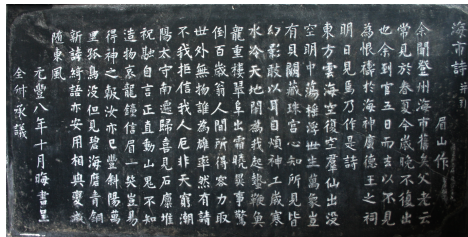 海市詩并引
眉山作
余聞登州海市舊矣父老云
常見於春夏今歲晚不復出
也余到官五日而去以不見
為恨禱於海神廣德王之祠
明日見焉乃作是詩
東方雲海空復空群仙出沒
空明中蕩搖浮世生萬象豈
有貝闕藏珠宮心知所見皆
幻影敢以耳目煩神工歲寒
水冷天地閉為我起蟄鞭魚
龍重樓翠阜出霜曉異事驚
倒百歲翁人間所得容力取
世外無物誰為雄率然有請
不我拒信我人厄非天窮潮
陽太守南遷歸喜見石廩堆
祝融自言正直動山鬼不知
造物哀龍鐘信眉一笑豈易
得神之報汝亦已豐斜陽萬
里孤鳥沒但見碧海磨青銅
新詩綺語亦安用相與變滅
隨東風
元豐八年十月晦書呈
全叔承議